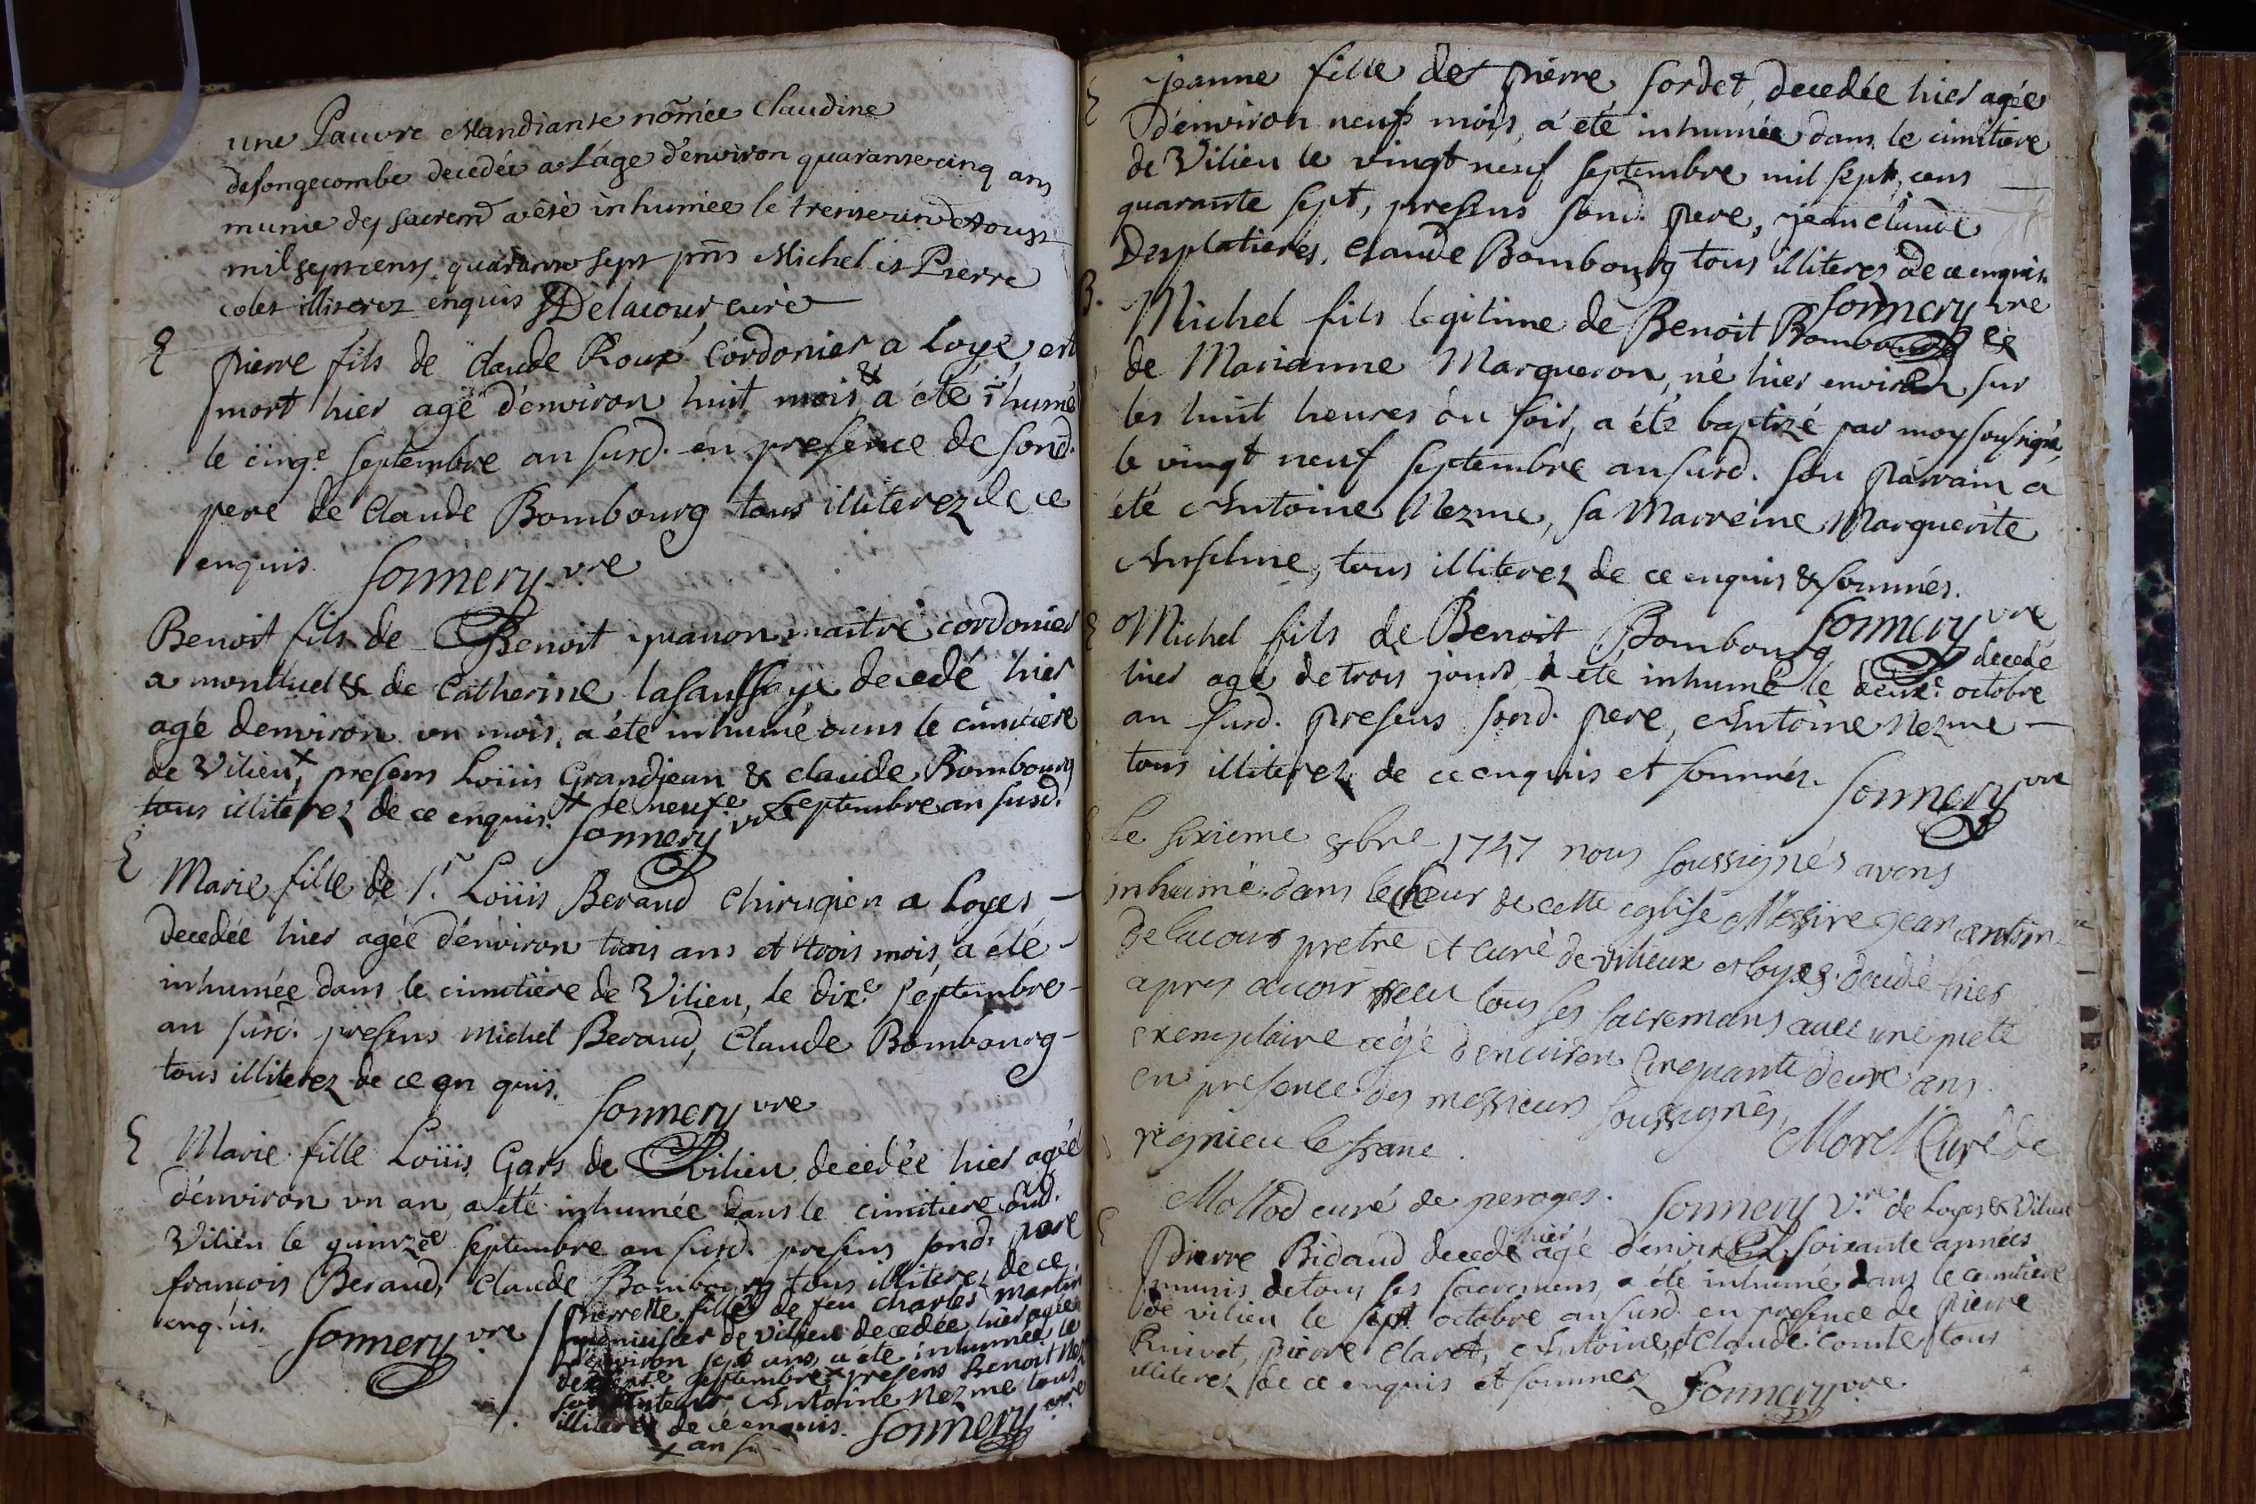 une Pauvre Mandiante nõmée Claudine
de songecombe decedée a L'age d'environ quarante cinq ans
munie des sacremd a été inhumée le trente un d'Aoust
mil sept cens quarante sept pñs Michel et Pierre
colet illiterez enquis Delacour curé
pierre fils de claude Roux Cordonier a Loye, est
mort hier agé d'environ huit mois & a été ihumé
le cinq.e septembre an susd. en presence de sond.
pere de Claude Bombourg tous illiterez de ce
enquis. Sonnery vre
Benoit fils de Benoit maitre cordonier
a montluel & de Catherine lasaussaye decedé hier
agé denviron un mois, a été inhumé dans le cimitiere
de Vilieu, + presens Loüis Grandjean & claude Bombourg
tous illiterez de ce enquis. + le neuf.e septembre an susd.
Sonnery vre
Marie fille de Sr. Loüis Beraud chirugien a Loyes -
decedée hier agée d'environ trois ans et trois mois, a été -
inhumée dans le cimitiere de Vilieu, le dix.e septembre -
an susd. presens michel Beraud, Claude Bombourg -
tous illiterez de ce en quis.
Sonnery vre
Marie fille Loüis Gars de Vilieu, decedée hier agée
d'environ un an, a été inhumée dans le cimitiere dud.
Vilieu le quinze septembre an susd. presens sond. pere
francois Beraud, Claude Bombourg tous illiterez de ce
enquis. Sonnery vre
pierrette fille de feu charles martin
de Vilieu decedée hier agée
d'environ sept ans, a été inhumée le
septembre + presens Benoit Nez
Antoine Nezme tous
illiterez de ce enquis. Sonnery vre
+ an su
jeanne fille de pierre sordet, decedée hier agée
D'environ neuf mois, a été inhumée dans le cimitiere
de Vilieu le vingt neuf septembre mil sept cens
quarante sept, presens sond. pere, jean claude
Desplatieres, claude Bombourg tous illiteres de ce enquis.
Sonnery vre
Michel fils legitime de Benoit Bombourg et
de Marianne Margueron, né hier environ sur
les huit heures du soir, a été baptizé par moy sousigné,
le vingt neuf septembre an susd. son parrain a
été Antoine Nezme, sa Marreine Marguerite
Anselme, tous illiterez de ce enquis & sommés.
Sonnery vre
Michel fils de Benoit Bombourg decedé
hier agé de trois jours a été inhumé le deux.e octobre
an susd. presens sond. pere, Antoine Nezme —
tous illiterez de ce enquis et sommés.
Sonnery vre
Le sixieme 8bre 1747 nous soussignés avons
inhumé dans le cheur de cette eglise Messire jean antoine
Delacour pretre et curé de vilieux et loyes decedé hier
apres avoir receu tous ses sacremans avec une pieté
exemplaire agé d'environ cinquante deux ans.
en presence des messieurs soussignés,
Morel Curé de
rignieu le franc.
Mollod curé de peroges. Sonnery v.re de Loyes & Vilieu
pierre Bidaud decedé hier agé d'environ soixante années
munis de tous ses sacremens, a été inhumé dans le cimitiere
de vilieu le sept octobre an susd. en presence de pierre
Pierre Claret, Antoine, & Claude Comte tous
illiterez de ce enquis et sommez Sonnery vre